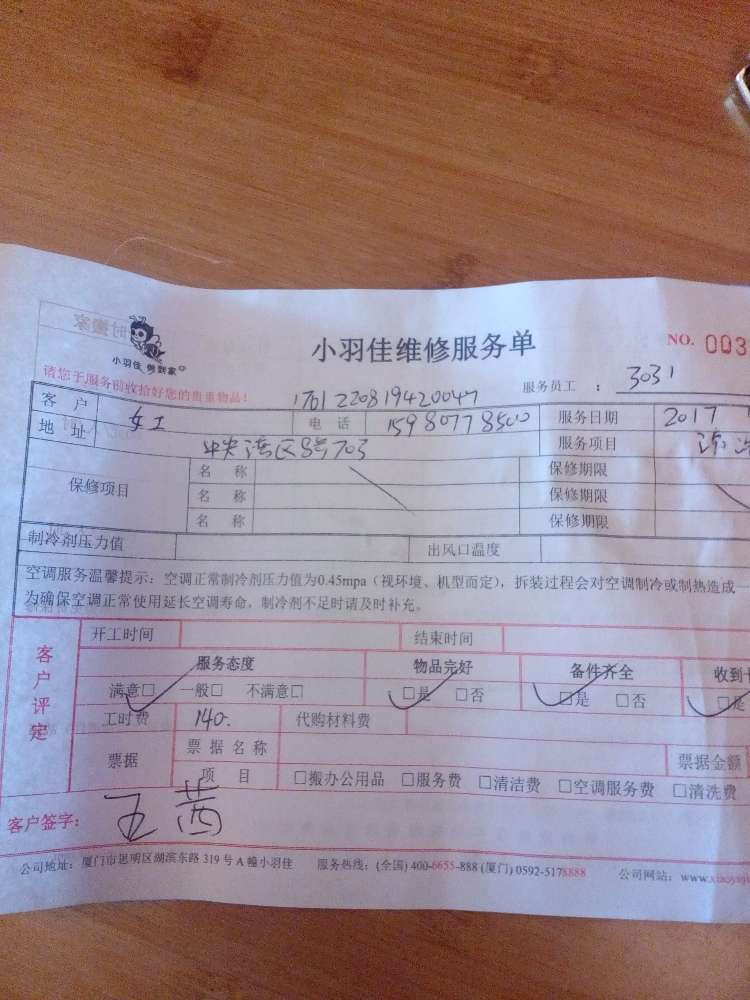 小羽佳 倒到家
小羽佳维修服务单
NO. 003
请您于服务前收拾好您的贵重物品！
1701220819420047
服务员工 ： 3031
客 户 女工 电 话 15980778500 服务日期 2017
地 址 中央湾区8号703 服务项目
保修项目 名 称 保修期限
名 称 保修期限
名 称 保修期限
制冷剂压力值 出风口温度
空调服务温馨提示：空调正常制冷剂压力值为0.45mpa（视环境、机型而定），拆装过程会对空调制冷或制热造成一
为确保空调正常使用延长空调寿命，制冷剂不足时请及时补充。
客户评定
开工时间 结束时间
服务态度 物品完好 备件齐全 收到
满意□ 一般□ 不满意□ □是 □否 □是 □否 □是
工时费 140. 代购材料费
票据 票据名称 票据金额
项 目 □搬办公用品 □服务费 □清洁费 □空调服务费 □清洗费
客户签字： 王茜
公司地址：厦门市思明区湖滨东路 319 号 A 幢小羽佳 服务热线：(全国) 400-6655-888 (厦门) 0592-5178888 公司网站：www.xiaoyu